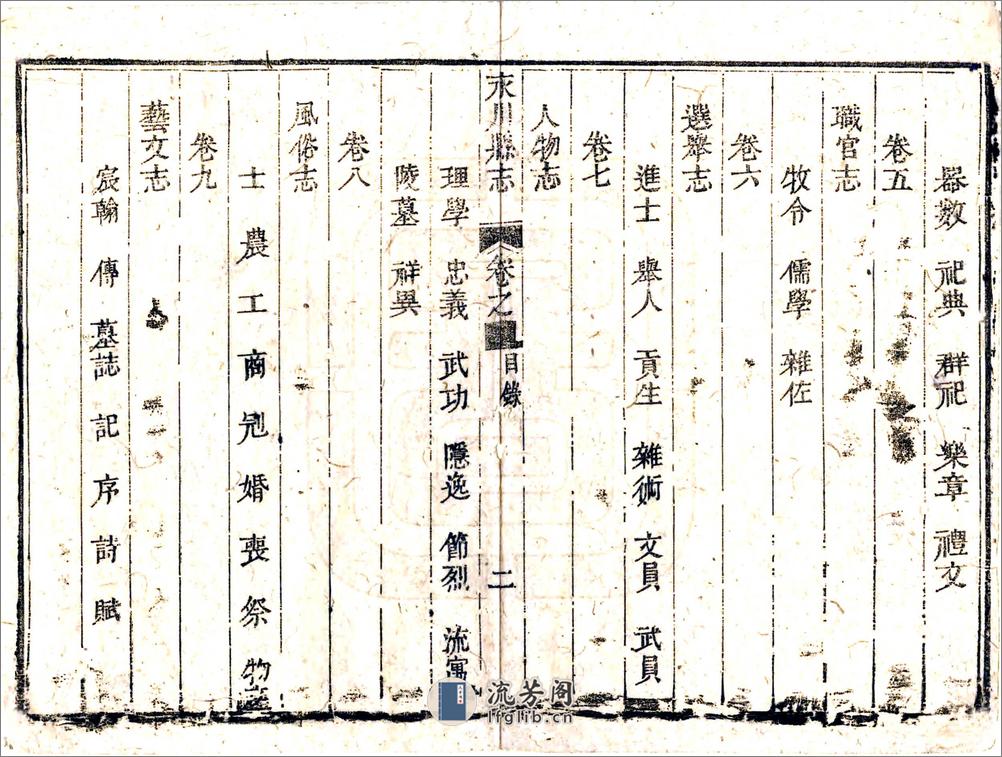 器數 祀典 群祀 樂章 禮文
卷五
職官志
牧令 儒學 雜佐
卷六
選舉志
進士 舉人 貢生 雜術 文員 武員
卷七
人物志
永川縣志 卷之 目錄 二
理學 忠義 武功 隱逸 節烈 流寓
陵墓 祥異
卷八
風俗志
士 農 工 商 冠 婚 喪 祭 物產
卷九
藝文志
宸翰 傳 墓誌 記 序 詩 賦
流芳阁
lfglib.cn